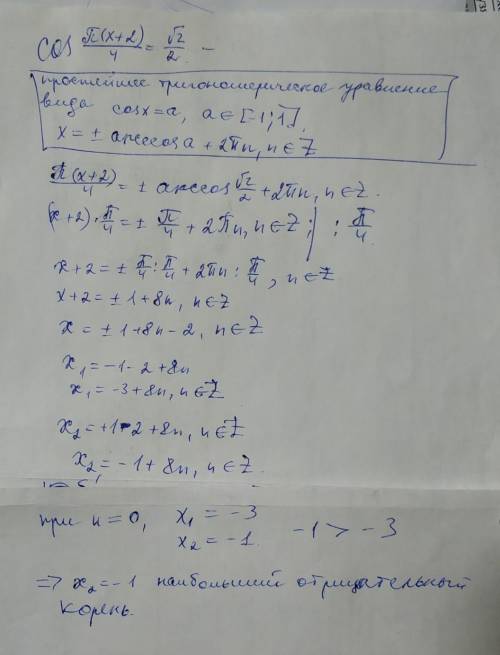 cos π(x+2)/4 = √2/2 –
простейшее тригономерическое уравнение
вида cosx=a, a∈[-1;1],
x = ± arccos a + 2πn, n∈Z
π(x+2)/4 = ± arccos √2/2 + 2πn, n∈Z.
(x+2)·π/4 = ± π/4 + 2πn, n∈Z; | : π/4
x+2 = ± π/4 : π/4 + 2πn : π/4, n∈Z
x+2 = ±1+8n, n∈Z
x = ±1+8n-2, n∈Z
x₁ = -1-2+8n
x₁ = -3+8n, n∈Z
x₂ = +1-2+8n, n∈Z
x₂ = -1+8n, n∈Z.
при n=0, x₁ = -3
x₂ = -1. -1 > -3
⇒ x₂ = -1 наибольший отрицательный
корень.